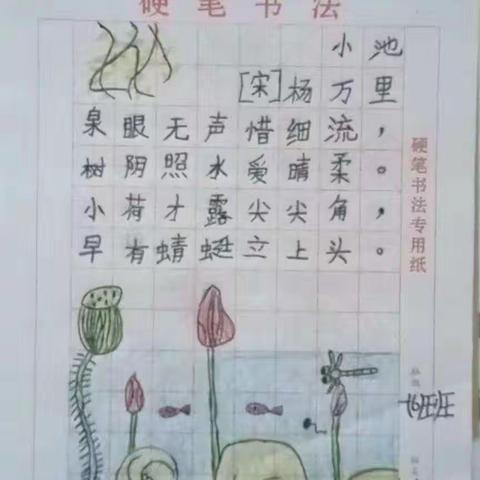 硬笔书法
小池
[宋]杨万里
泉眼无声惜细流，
树阴照水爱晴柔。
小荷才露尖尖角，
早有蜻蜓立上头。
硬笔书法专用纸